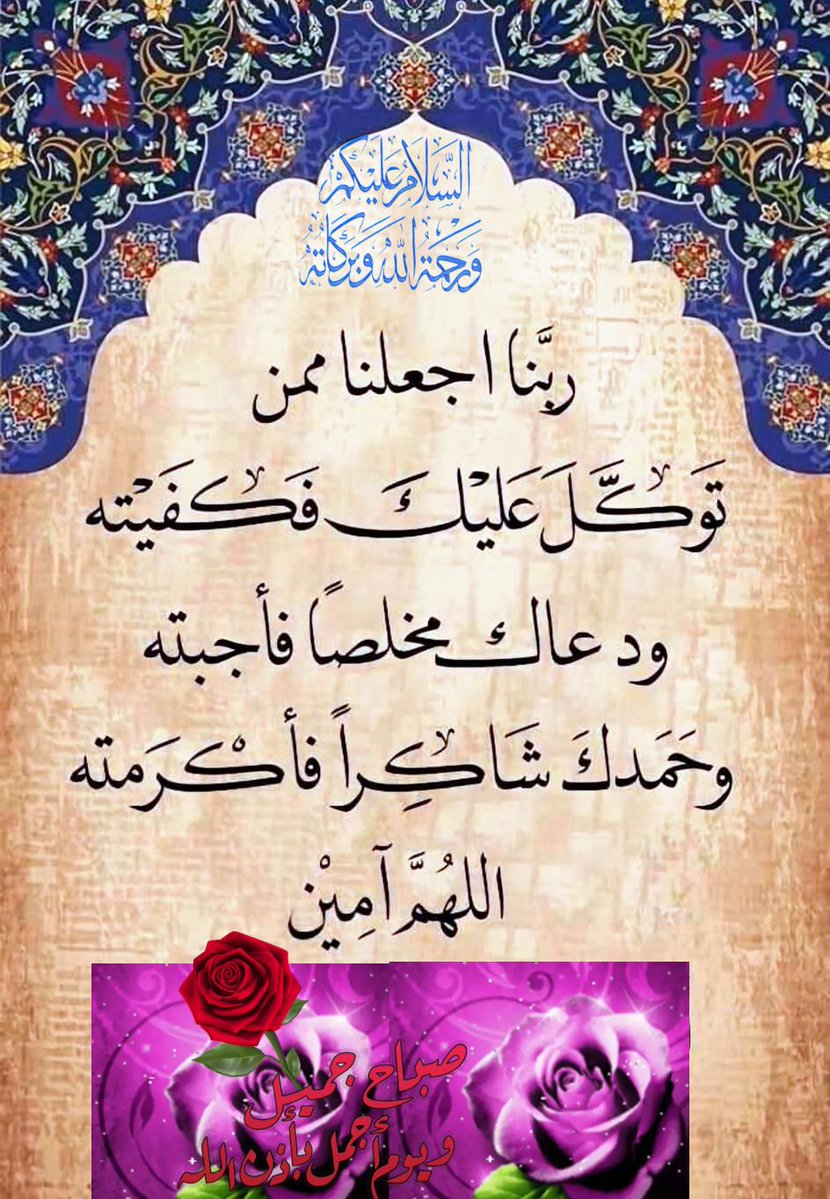 السَّلَامُ عَلَيْكُمْ
وَرَحْمَةُ اللهِ وَبَرَكَاتُهُ
ربَّنا اجعلنا ممن
تَوَكَّلَ عَلَيْكَ فَكَفَيْته
ودعاك مخلصاً فأجبته
وحَمَدكَ شَاكِراً فأكْرَمته
اللهُمَّ آمِيْن
صباح جميل
ويوم أجمل بإذن الله